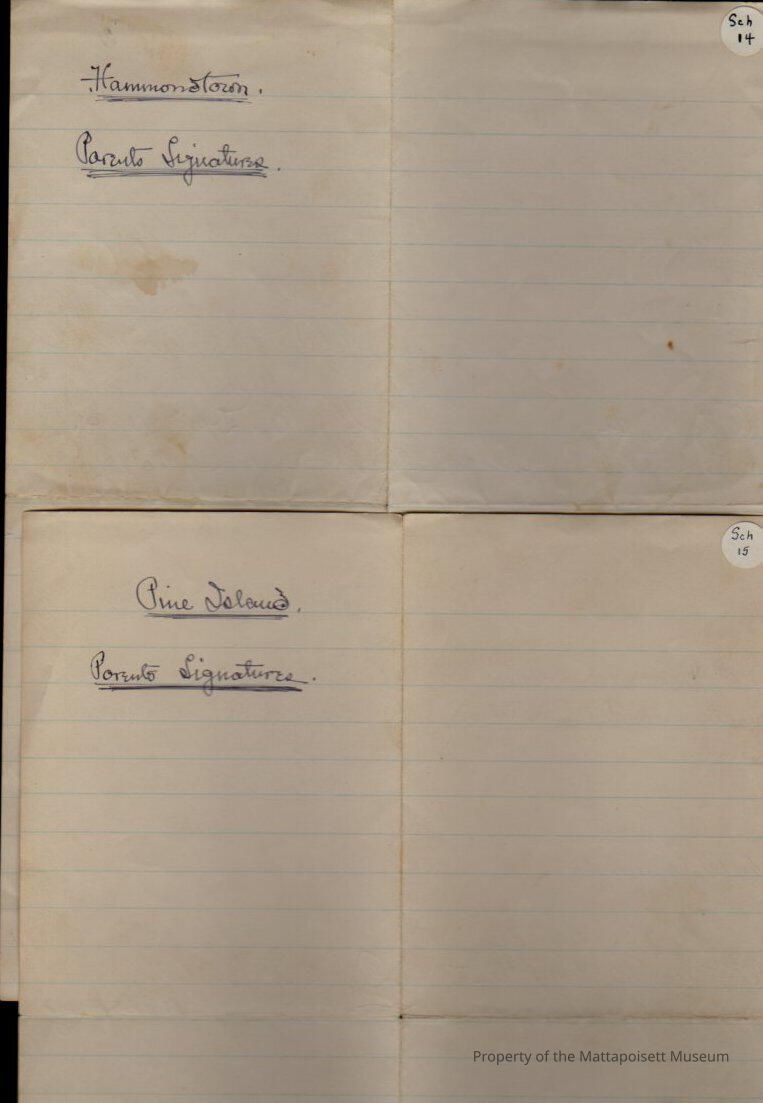 Sch
14
Hammondtown.
Parents Signatures.
Sch
15
Pine Island.
Parents Signatures.
Property of the Mattapoisett Museum